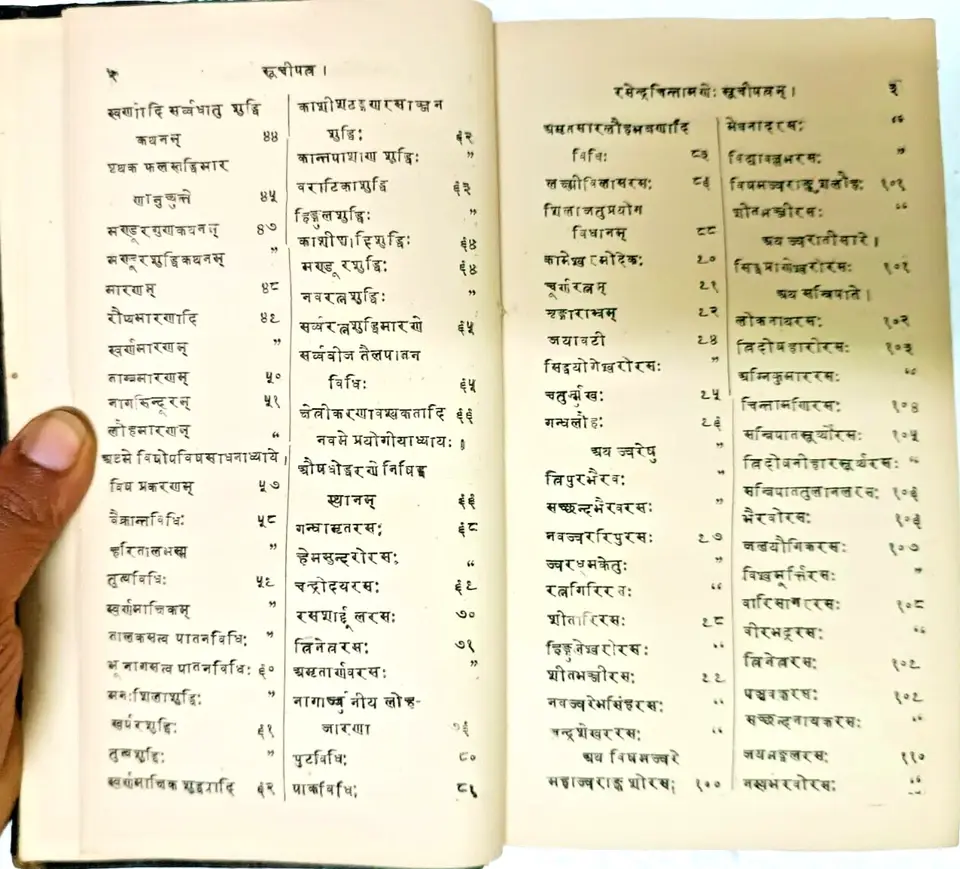 ५ सूचीपत्र ।
स्वर्णादि सर्व्वधातु शुद्धि
कथनम् ४४
पृथक फलसद्धिमार
णानुच्युत्ते ४५
मण्डूरगुणकथनम् ४७
मण्डूरशुद्धिकथनम् ”
मारणम् ४८
रौप्यमारणादि ४९
स्वर्णमारणम् ”
ताम्रमारणम् ५०
नागसिन्दूरम् ५१
लोहमारणञ् “
अष्टमे विषोपविषसाधनाध्याये ।
विष प्रकरणम् ५७
वैक्रान्तविधिः ५८
हरितालभस्म ”
तुत्थविधिः ५९
स्वर्णमाक्षिकम् ”
तालकसत्व पातनविधिः ”
भूनागसत्व पातनविधिः ६०
मनःशिलाशुद्धिः ”
खर्परशुद्धिः ६१
तुत्थशुद्धिः ”
स्वर्णमाक्षिक शुद्ध्यादि ६२
काशीशटङ्कणरसाञ्जन
शुद्धिः ६२
कान्तपाशाण शुद्धिः ”
वराटिकाशुद्धि ६३
हिङ्गुलशुद्धिः ”
काशीषादिशुद्धिः ६४
मण्डूरशुद्धिः ६४
नवरत्नशुद्धिः ”
सर्व्वरत्नशुद्धिमारणे ६५
सर्व्ववीज तैलपातन
विधिः ६५
चेलीकरणावश्यकतादि ६६
नवमे प्रयोगीयाध्यायः ।
औषधोद्धरणे निषिद्ध
स्थानम् ६६
गन्धामृतरसः ६८
हेमसुन्दरोरसः “
चन्द्रोदयरसः ६९
रसशार्द्दूलरसः ७०
त्रिनेत्ररसः ७१
अमृतार्णवरसः ”
नागार्ज्जुनीय लोह-
जारणा ७६
पुटविधिः ८०
पाकविधिः ८१
रसेन्द्रचिन्तामणेः सूचीपत्रम् । ३
अमृतसारलौहभक्षणादि
विधिः ८३
लक्ष्मीविलासरसः ८६
शिलाजतुप्रयोग
विधानम् ८८
कामेश्वरमोदकः ९०
चूर्णरत्नम् ९१
शृङ्गाराभ्रम् ९२
जयावटी ९४
सिद्धयोगेश्वरोरसः ”
चतुर्मुखः ९५
गन्धलौहः ९६
अथ ज्वरेषु
त्रिपुरभैरवः ”
सच्छन्दभैरवरसः ”
नवज्वररिपुरसः ९७
ज्वरधूमकेतुः ”
रत्नगिरिरसः “
शीतारिरसः ९८
हिङ्गुलेश्वरोरसः “
शीतभञ्जीरसः ९९
नवज्वरेभसिंहरसः “
चन्द्रशेखररसः “
अथ विषमज्वरे
महाज्वराङ्कुशोरसः १००
मेघनादरसः “
विद्यावल्लभरसः ”
विषमज्वराङ्कुशलौहः १०१
शीतभञ्जीरसः “
अथ ज्वरातीसारे ।
सिद्धप्राणेश्वरोरसः १०१
अथ सन्निपाते ।
लोकनाथरसः १०२
त्रिदोषहारीरसः १०३
अग्निकुमाररसः “
चिन्तामणिरसः १०४
सन्निपातसूर्य्योरसः १०५
त्रिदोषनीहारसूर्य्यरसः “
सन्निपाततुलानलरसः १०६
भैरवोरसः १०६
जलयौगिकरसः १०७
विश्वमूर्त्तिरसः ”
वारिसागररसः १०८
वीरभद्ररसः “
त्रिनेत्ररसः १०९
पञ्चवक्त्ररसः १०९
सच्छन्दनायकरसः “
जयमङ्गलरसः ११०
नस्यभैरवोरसः “